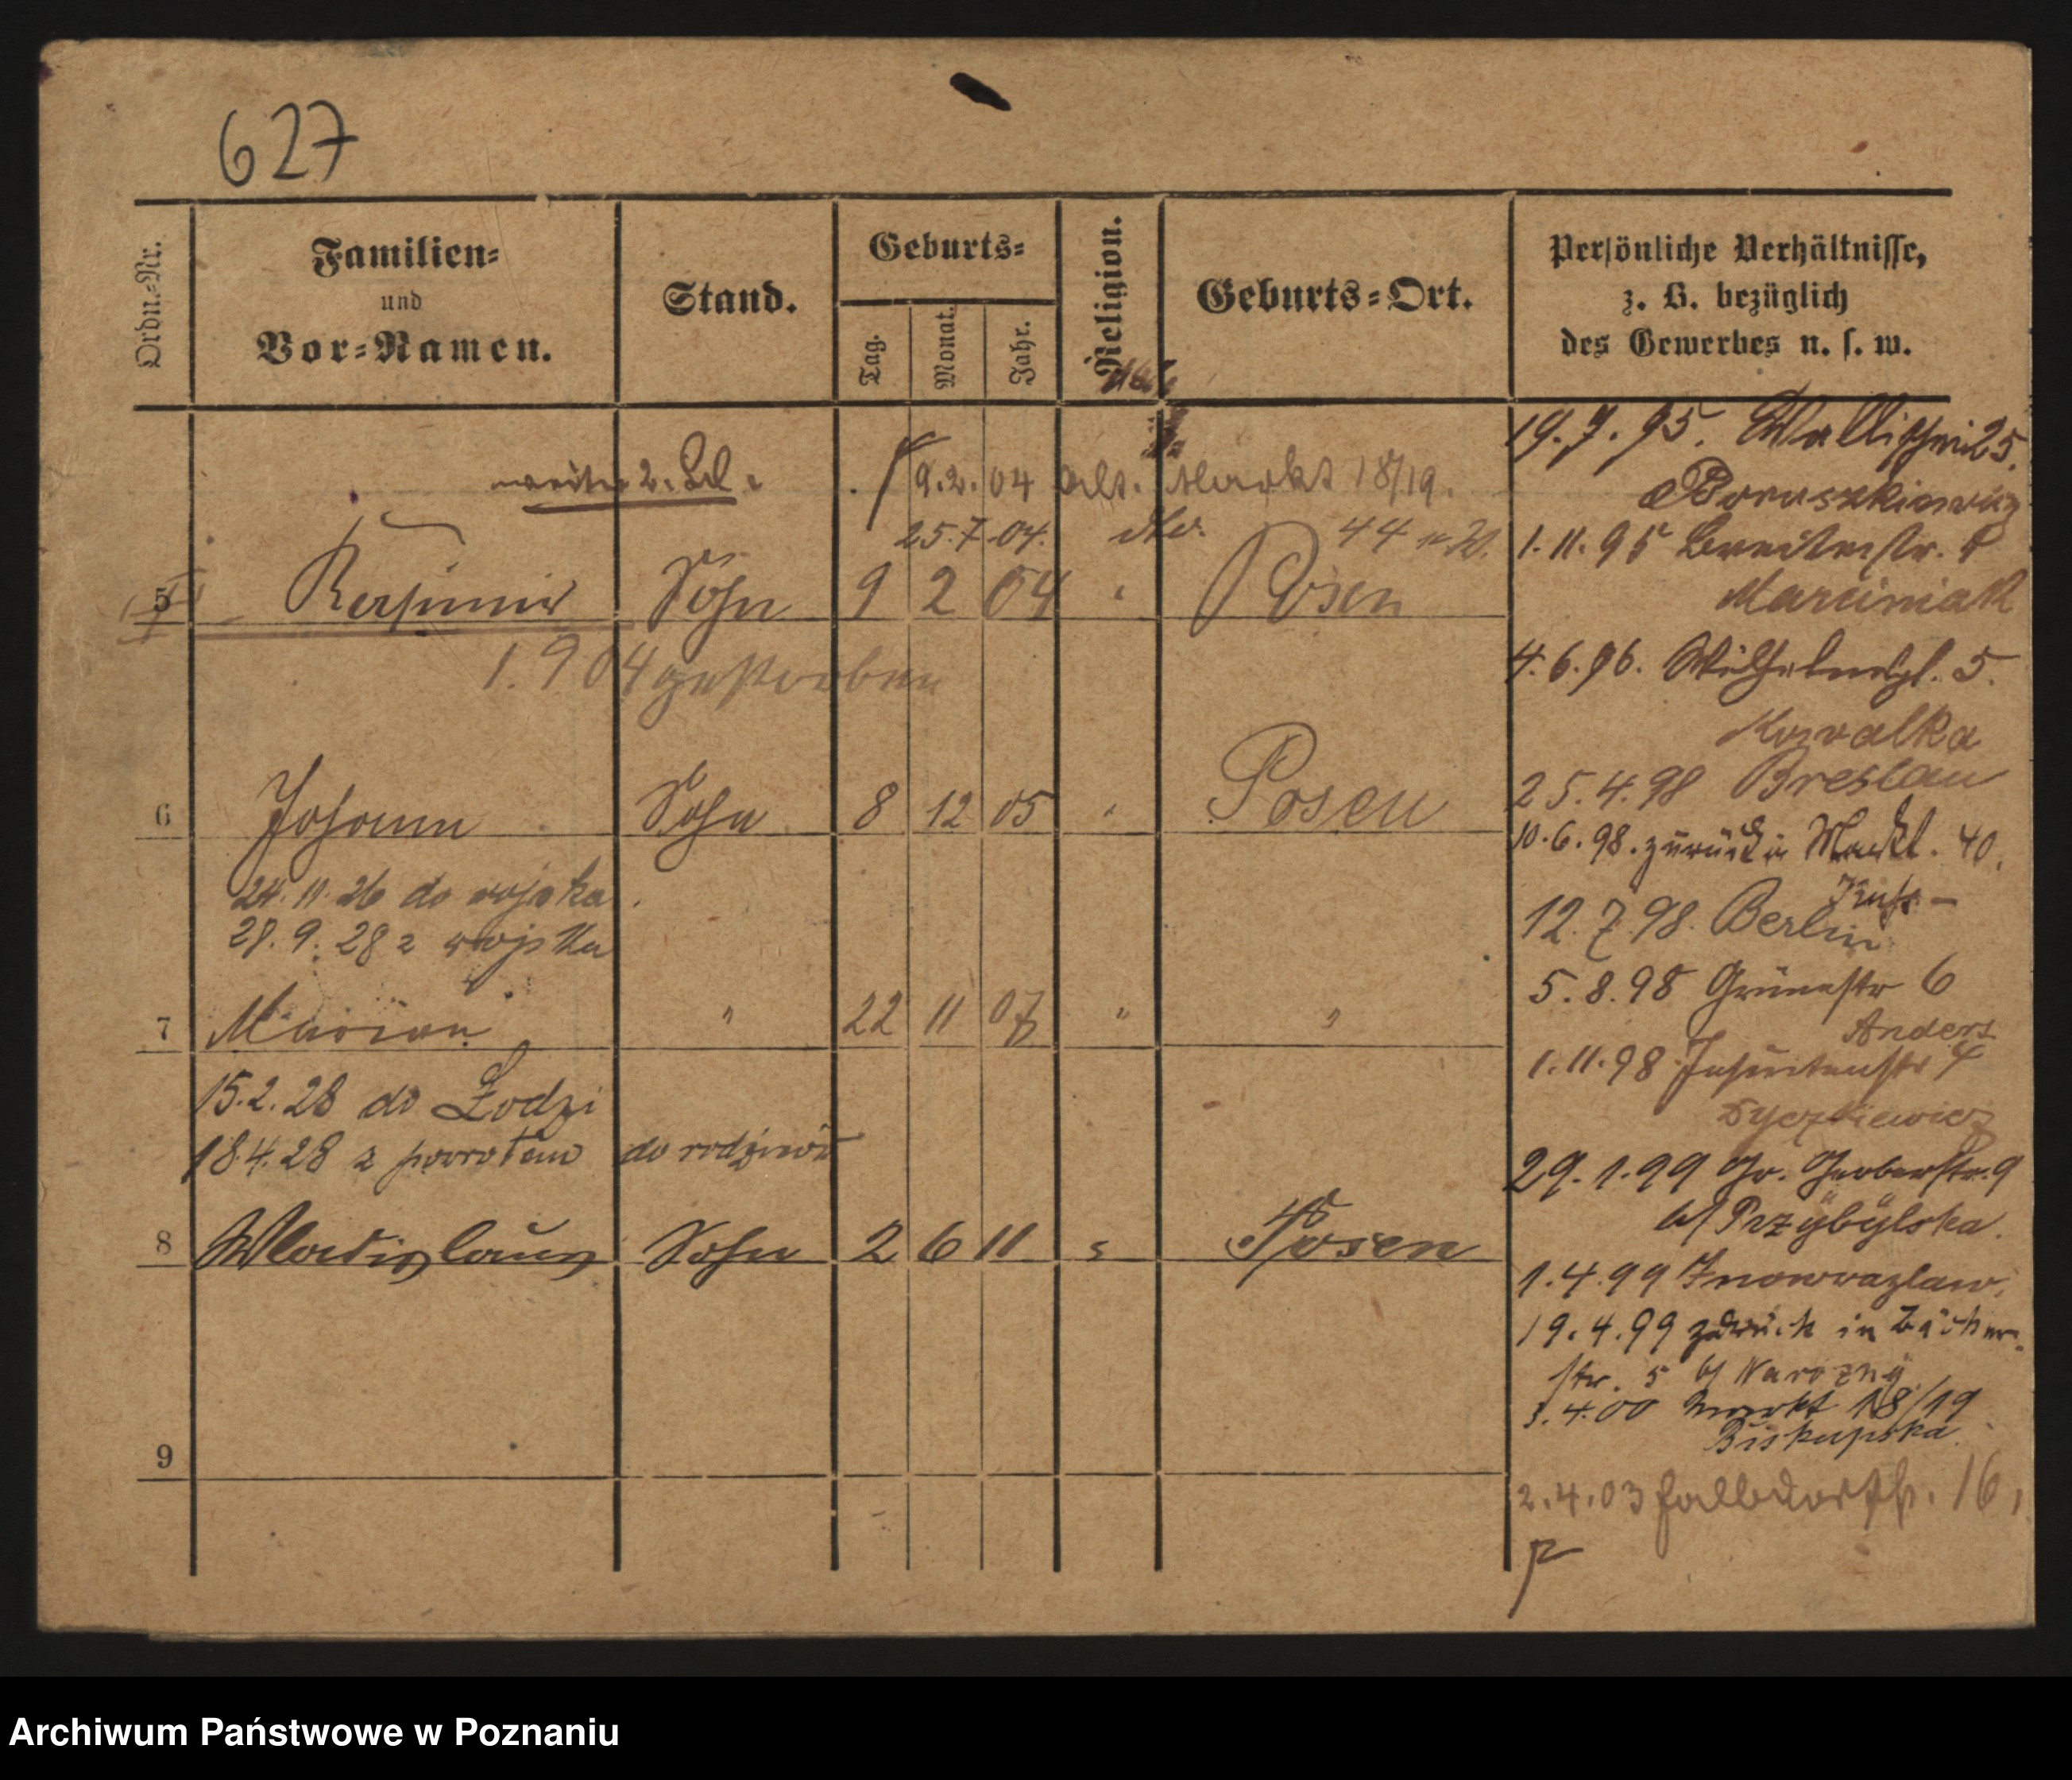 627
Ordn.-Nr.
Familien-
und
Vor-Namen.
Stand.
Geburts-
Tag.
Monat.
Jahr.
Religion.
Geburts-Ort.
Persönliche Verhältnisse,
z. B. bezüglich
des Gewerbes u. s. w.
9.2.04 alt. Markt 18/19.
25.7.04. 44
5 Kasimir Sohn 9 2 04 " Posen
1.9.04 gestorben
6 Johann Sohn 8 12 05 " Posen
24.11.26 do wojska
28.9.28 z wojska
7 Marian " 22 11 07 " "
15.2.28 do Łodzi
18.4.28 z powrotem do rodziców
8 Wladislaus Sohn 2 6 11 " Posen
9
19.7.95. Wallischei 25.
Boruszkiewicz
1.11.95 Breitestr.
Marciniak
4.6.96. Wilhelmspl. 5.
Kowalka
25.4.98 Breslau
10.6.98. zurück in Markt. 40.
12.7.98. Berlin
5.8.98 Grünestr 6
Anders
1.11.98 Jesuitenstr 4
Dyczkiewicz
29.1.99 Gr. Gerberstr. 9
b/ Przybylska.
1.4.99 Inowrazlaw.
19.4.99 zurück in Bäcker-
str. 5 b/ Narozny
1.4.00 Markt 18/19
Biskupska
2.4.03 Halbdorfstr. 16,
Archiwum Państwowe w Poznaniu